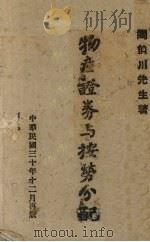 閻伯川先生著
物產證券与按勞分配
中華民國三十年十二月再版